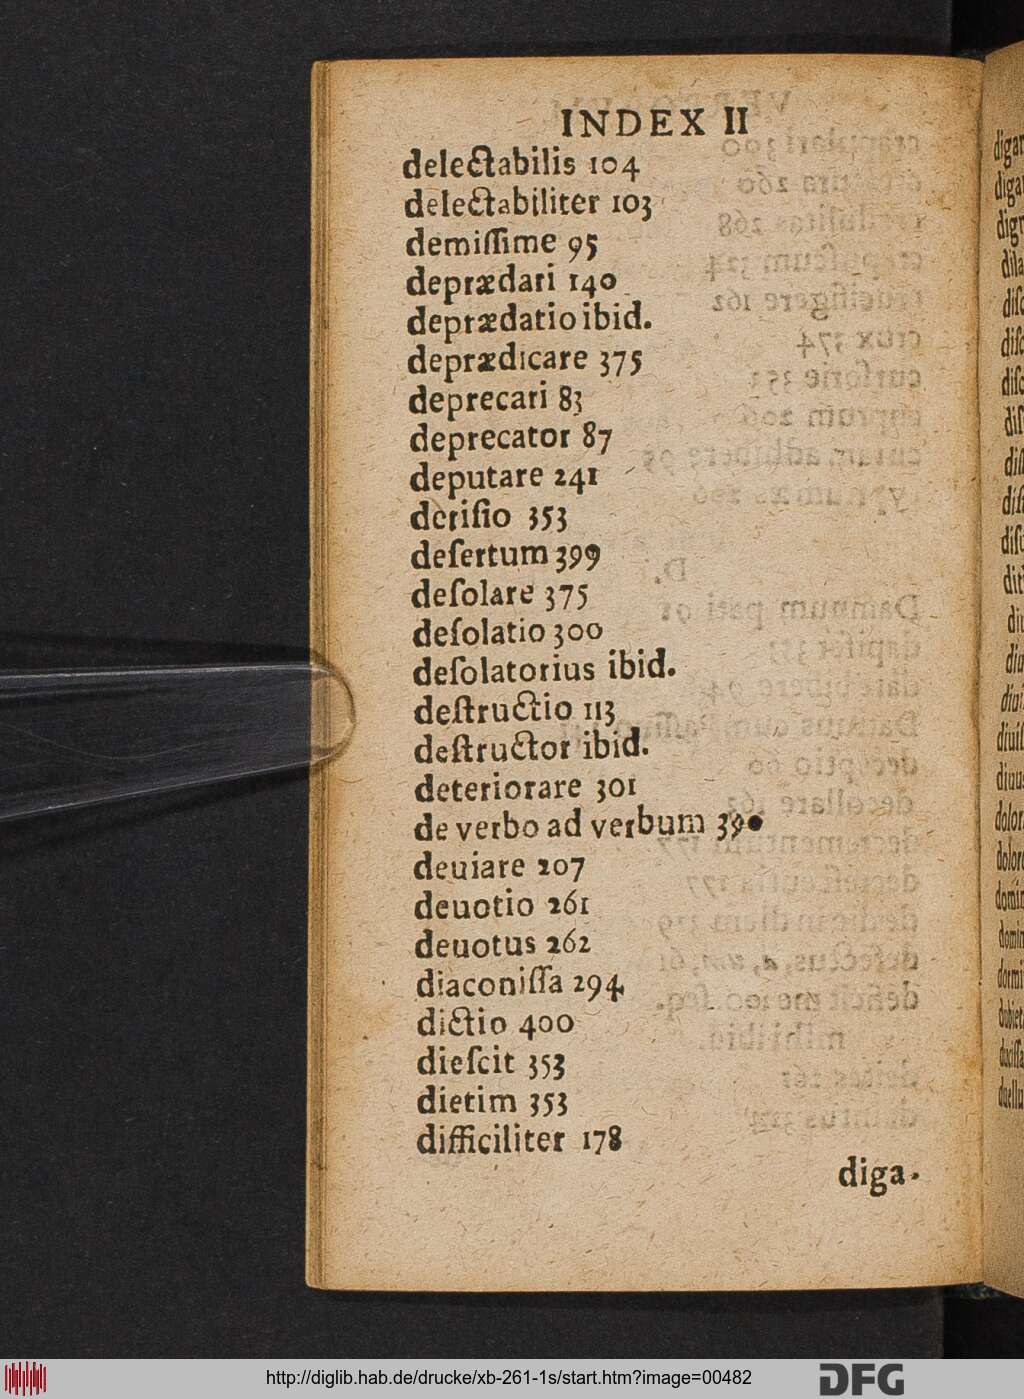 INDEX II
delectabilis 104
delectabiliter 103
demiſſime 95
deprædari 140
deprædatio ibid.
deprædicare 375
deprecari 83
deprecator 87
deputare 241
deriſio 353
deſertum 399
deſolare 375
deſolatio 300
deſolatorius ibid.
deſtructio 113
deſtructor ibid.
deteriorare 301
de verbo ad verbum
deuiare 207
deuotio 261
deuotus 262
diaconiſſa 294
dictio 400
dieſcit 353
dietim 353
difficiliter 178
diga-
http://diglib.hab.de/drucke/xb-261-1s/start.htm?image=00482
DFG